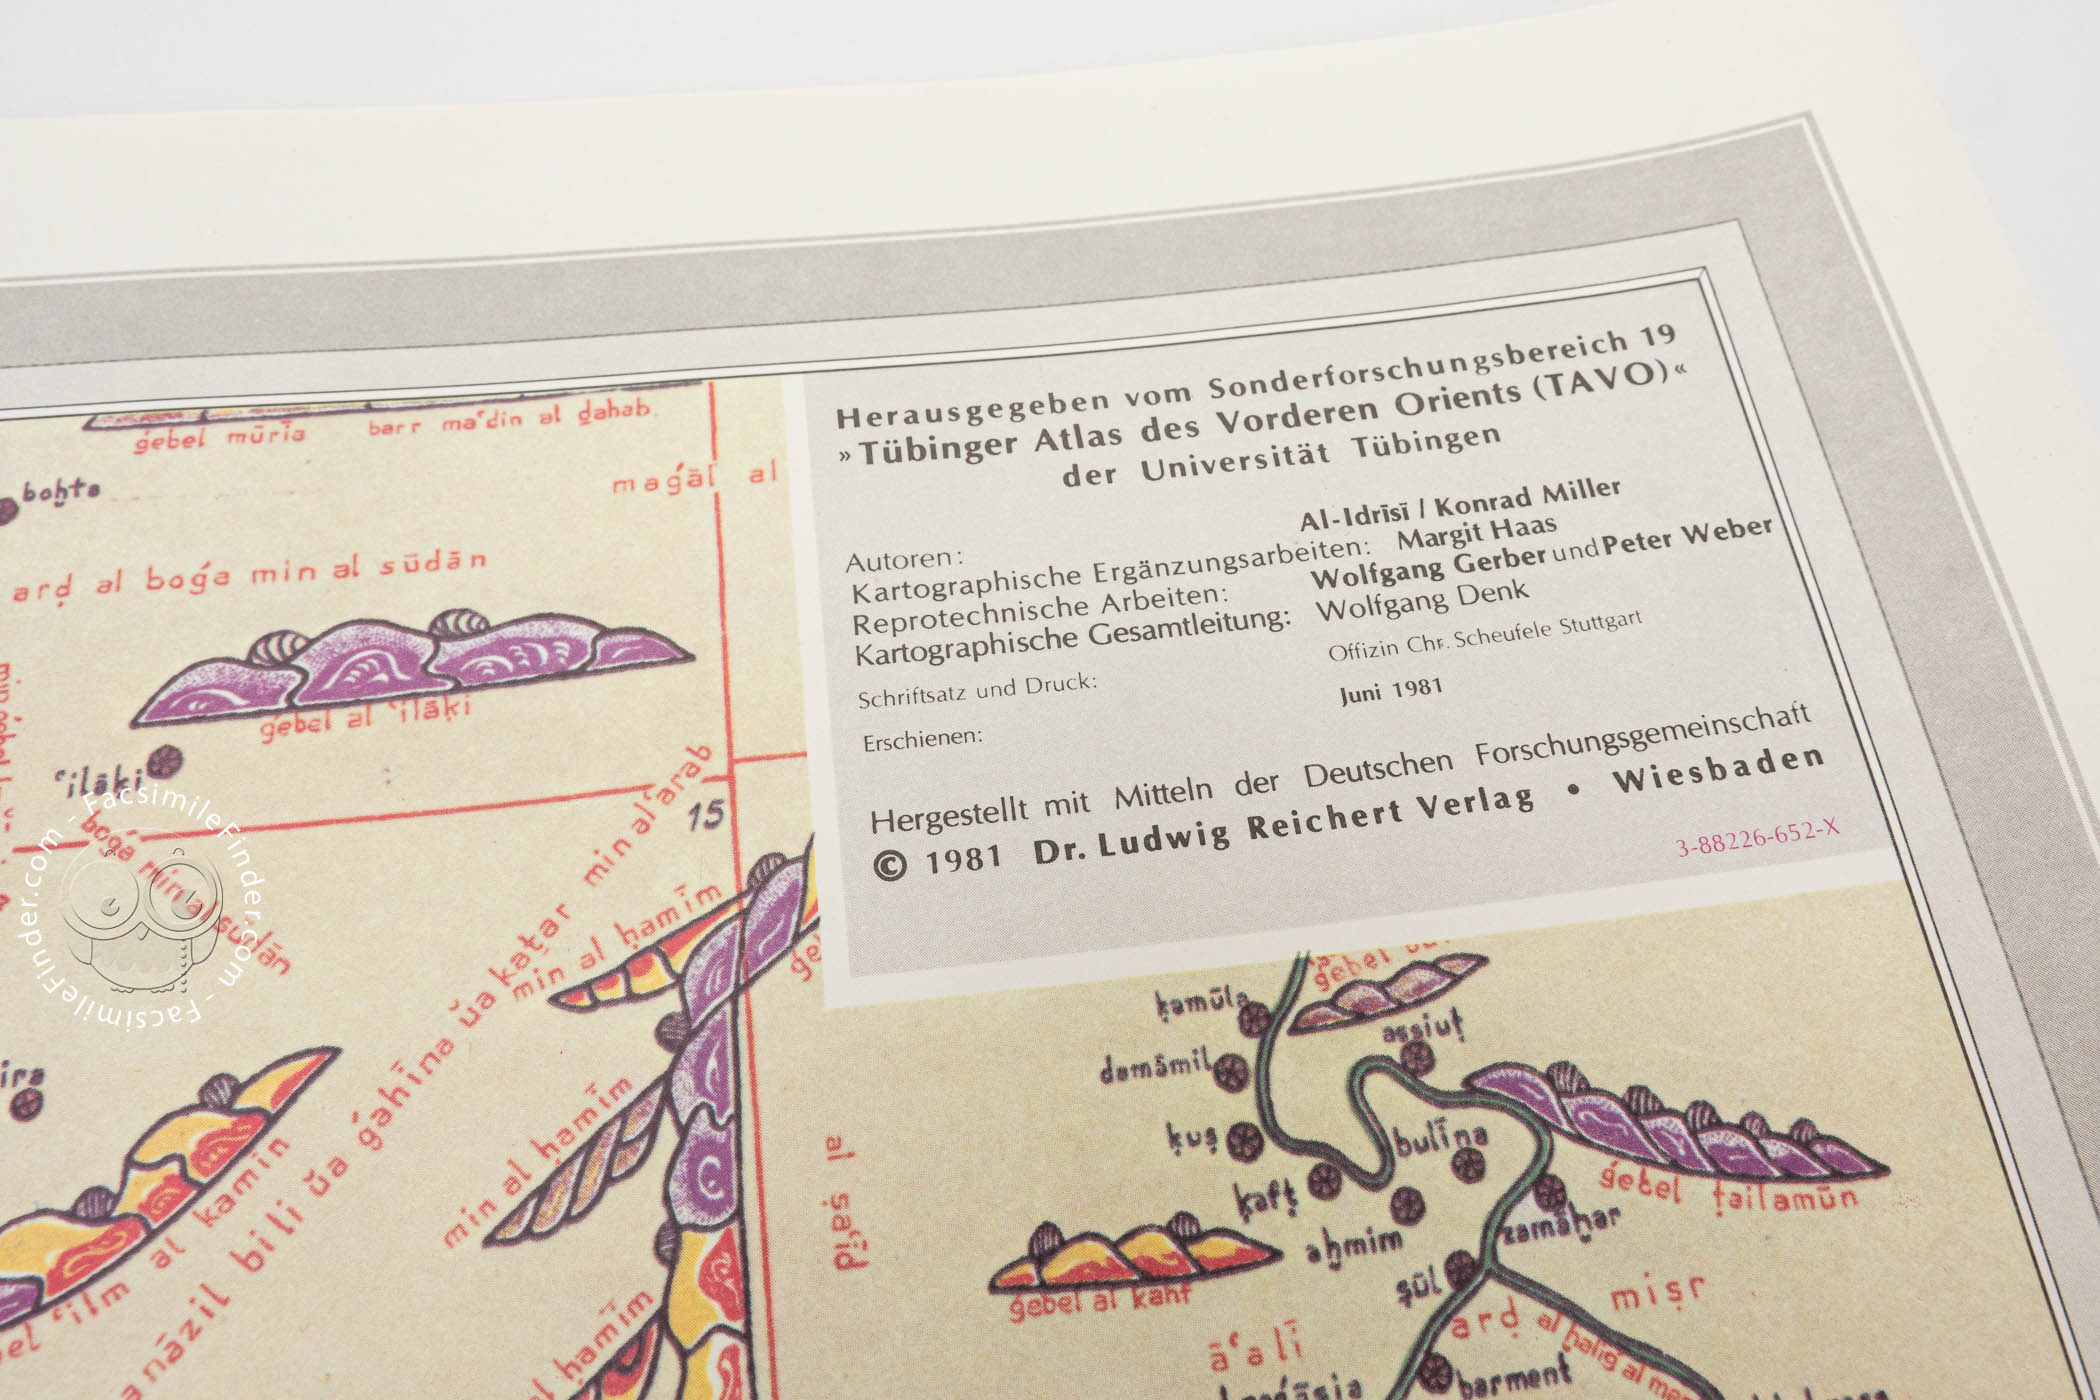 Herausgegeben vom Sonderforschungsbereich 19
»Tübinger Atlas des Vorderen Orients (TAVO)«
der Universität Tübingen
Autoren: Al-Idrīsī / Konrad Miller
Kartographische Ergänzungsarbeiten: Margit Haas
Reprotechnische Arbeiten: Wolfgang Gerber und Peter Weber
Kartographische Gesamtleitung: Wolfgang Denk
Schriftsatz und Druck: Offizin Chr. Scheufele Stuttgart
Erschienen: Juni 1981
Hergestellt mit Mitteln der Deutschen Forschungsgemeinschaft
© 1981 Dr. Ludwig Reichert Verlag • Wiesbaden
3-88226-652-X
ǵebel mūrīa
barr maʿdin al ḏahab
boḫta
maǵāl al
arḍ al boǵa min al sūdān
ǵebel al ʿilāḳi
ʿilāḳi
boǵa min al sūdān
15
min al ʿarab
ŭa ǵahīna ŭa kaṭar
min al ḥamīm
min al ḥamīm
al ḥamīm
bili
al kamin
ʿilm
al ṣaʿīd
ḳamūla
ǵebel
assiuṭ
demāmil
ḳuṣ
bulīna
ḳafṭ
ǵebel ṭailamūn
aḫmim
zamāḫar
ǵebel al kahf
ṣūl
miṣr
arḍ al ḫalīǵ al
āʿalī
barment
FacsimileFinder.com - FacsimileFinder.com -